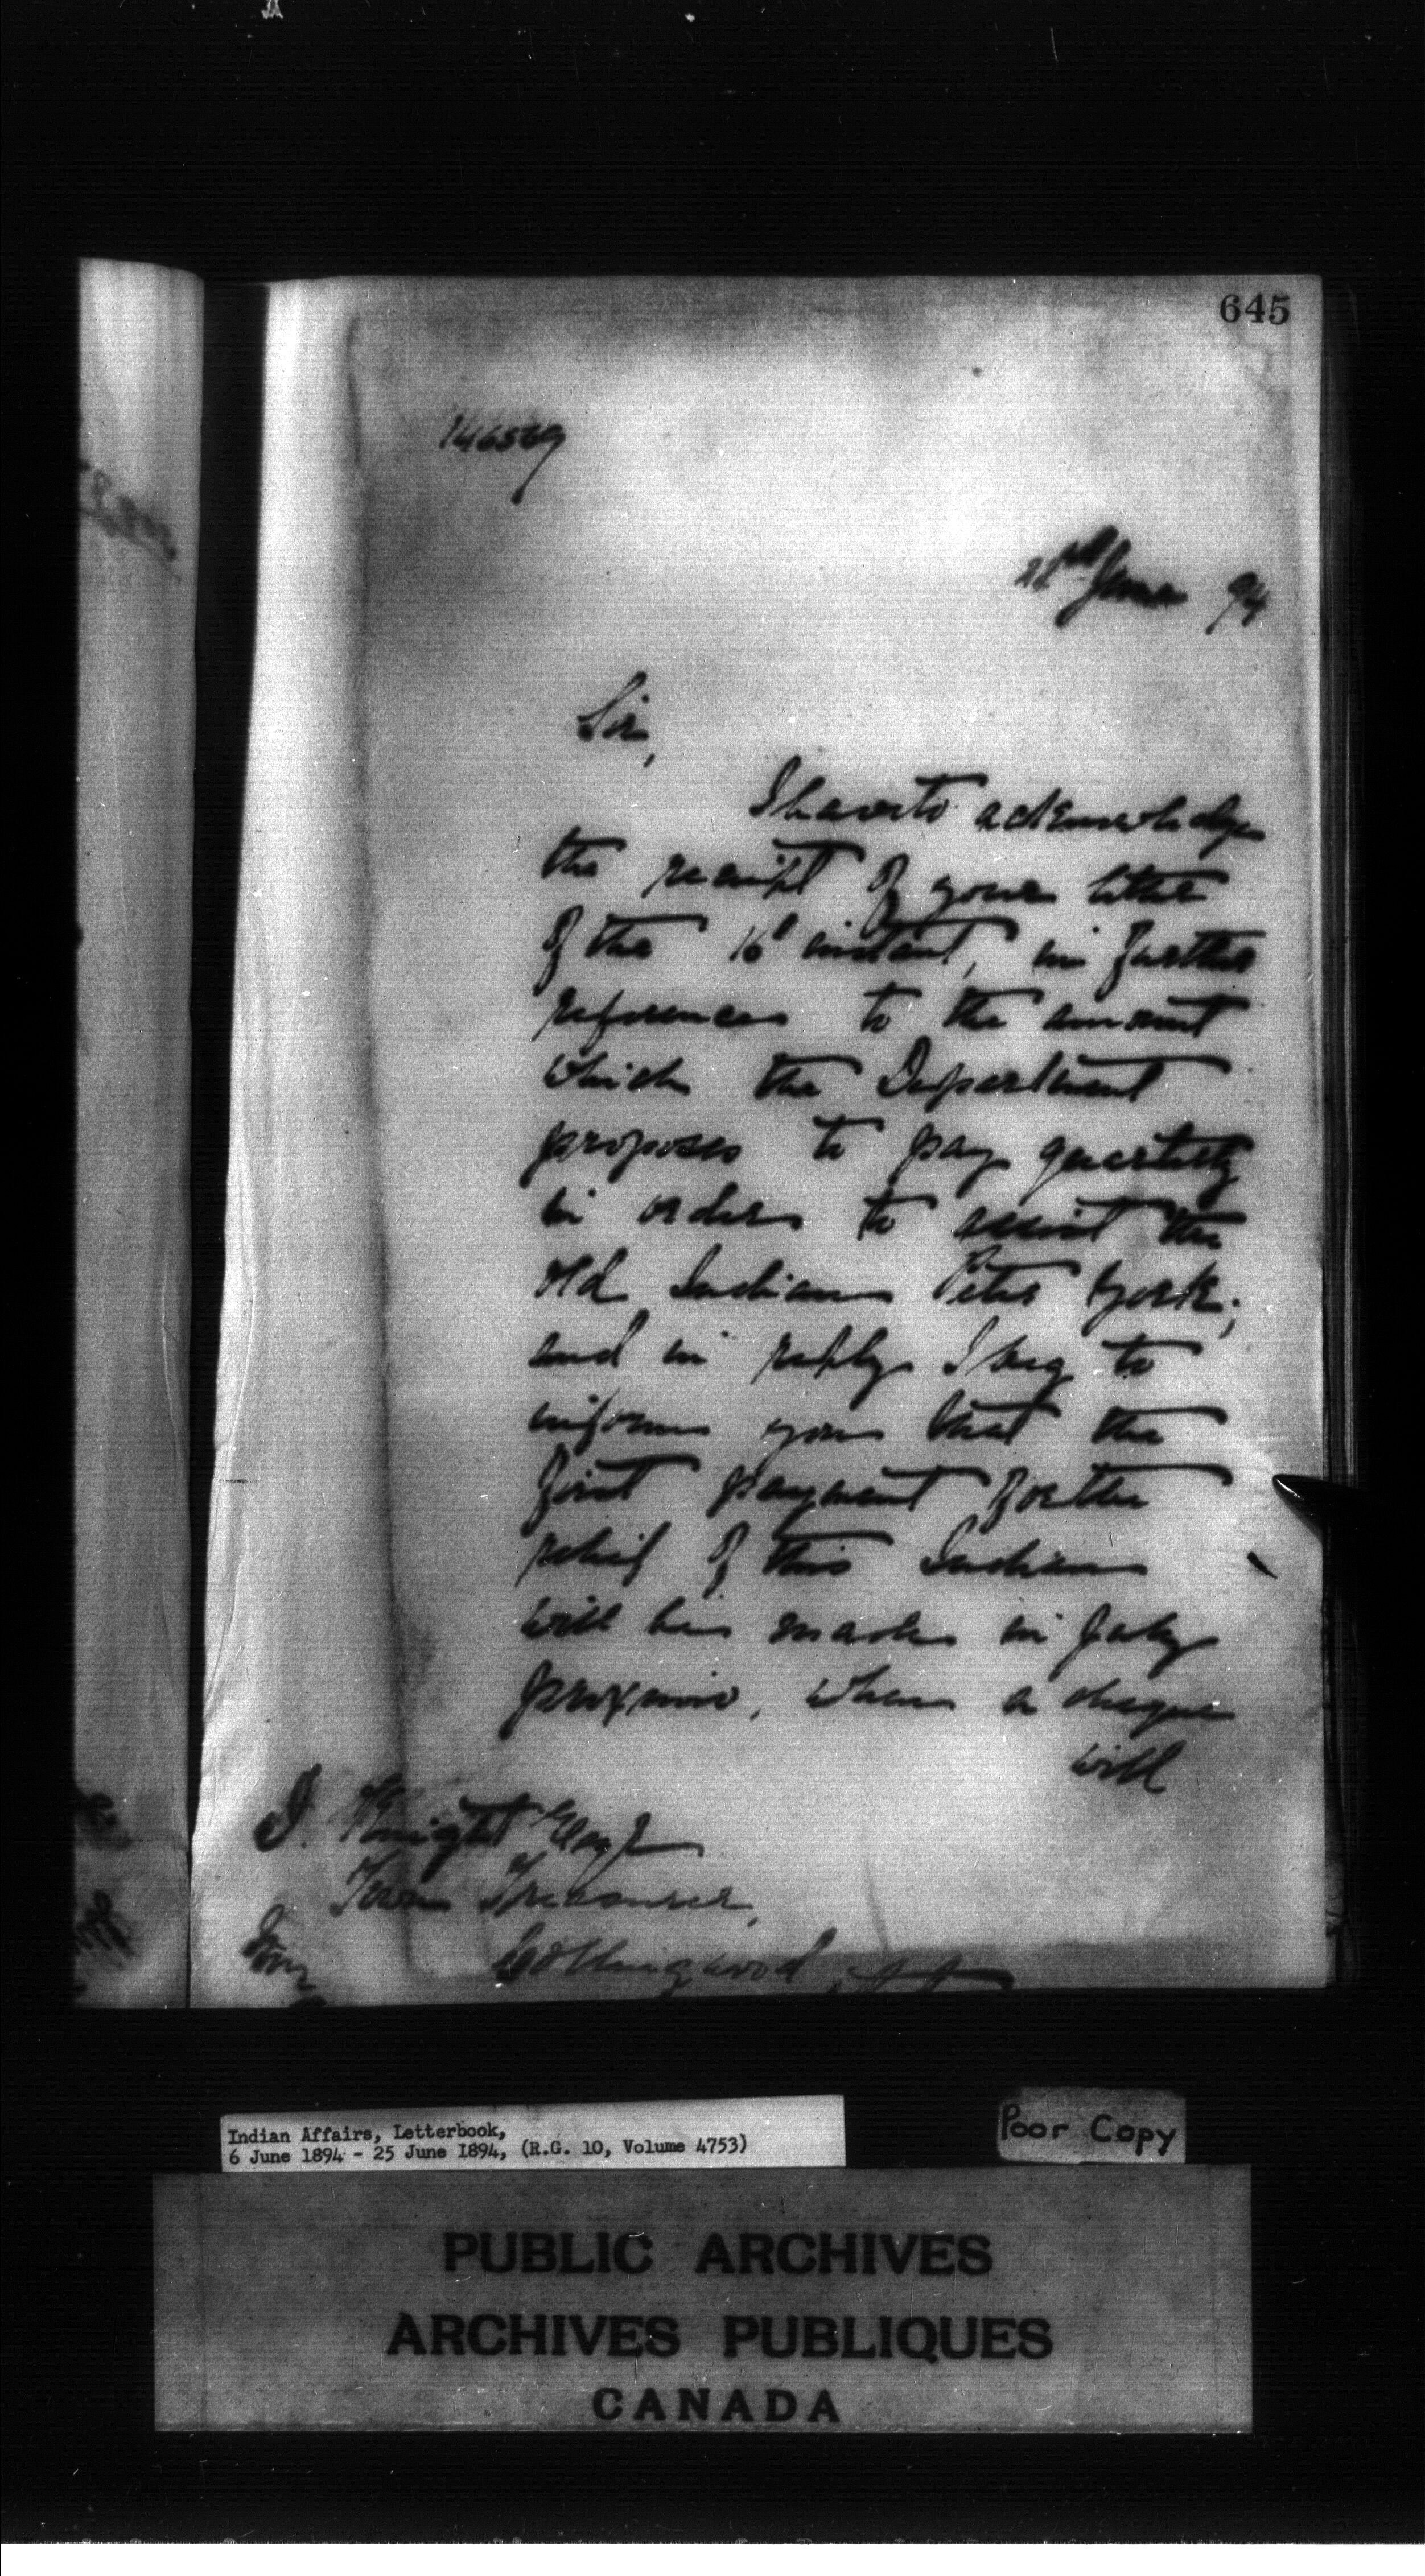 645
146569
22nd June 94
Sir,
I have to acknowledge
the receipt of your letter
of the 16t instant, in further
reference to the amount
which the Department
proposes to pay quarterly
in order to assist the
old Indian Peter York;
and in reply I beg to
inform you that the
first payment for the
relief of this Indian
will be made in July
proximo, when a cheque
will
Knight Esqr
Town Treasurer,
Collingwood,
Indian Affairs, Letterbook,
6 June 1894 - 25 June 1894, (R.G. 10, Volume 4753)
Poor Copy
PUBLIC ARCHIVES
ARCHIVES PUBLIQUES
CANADA